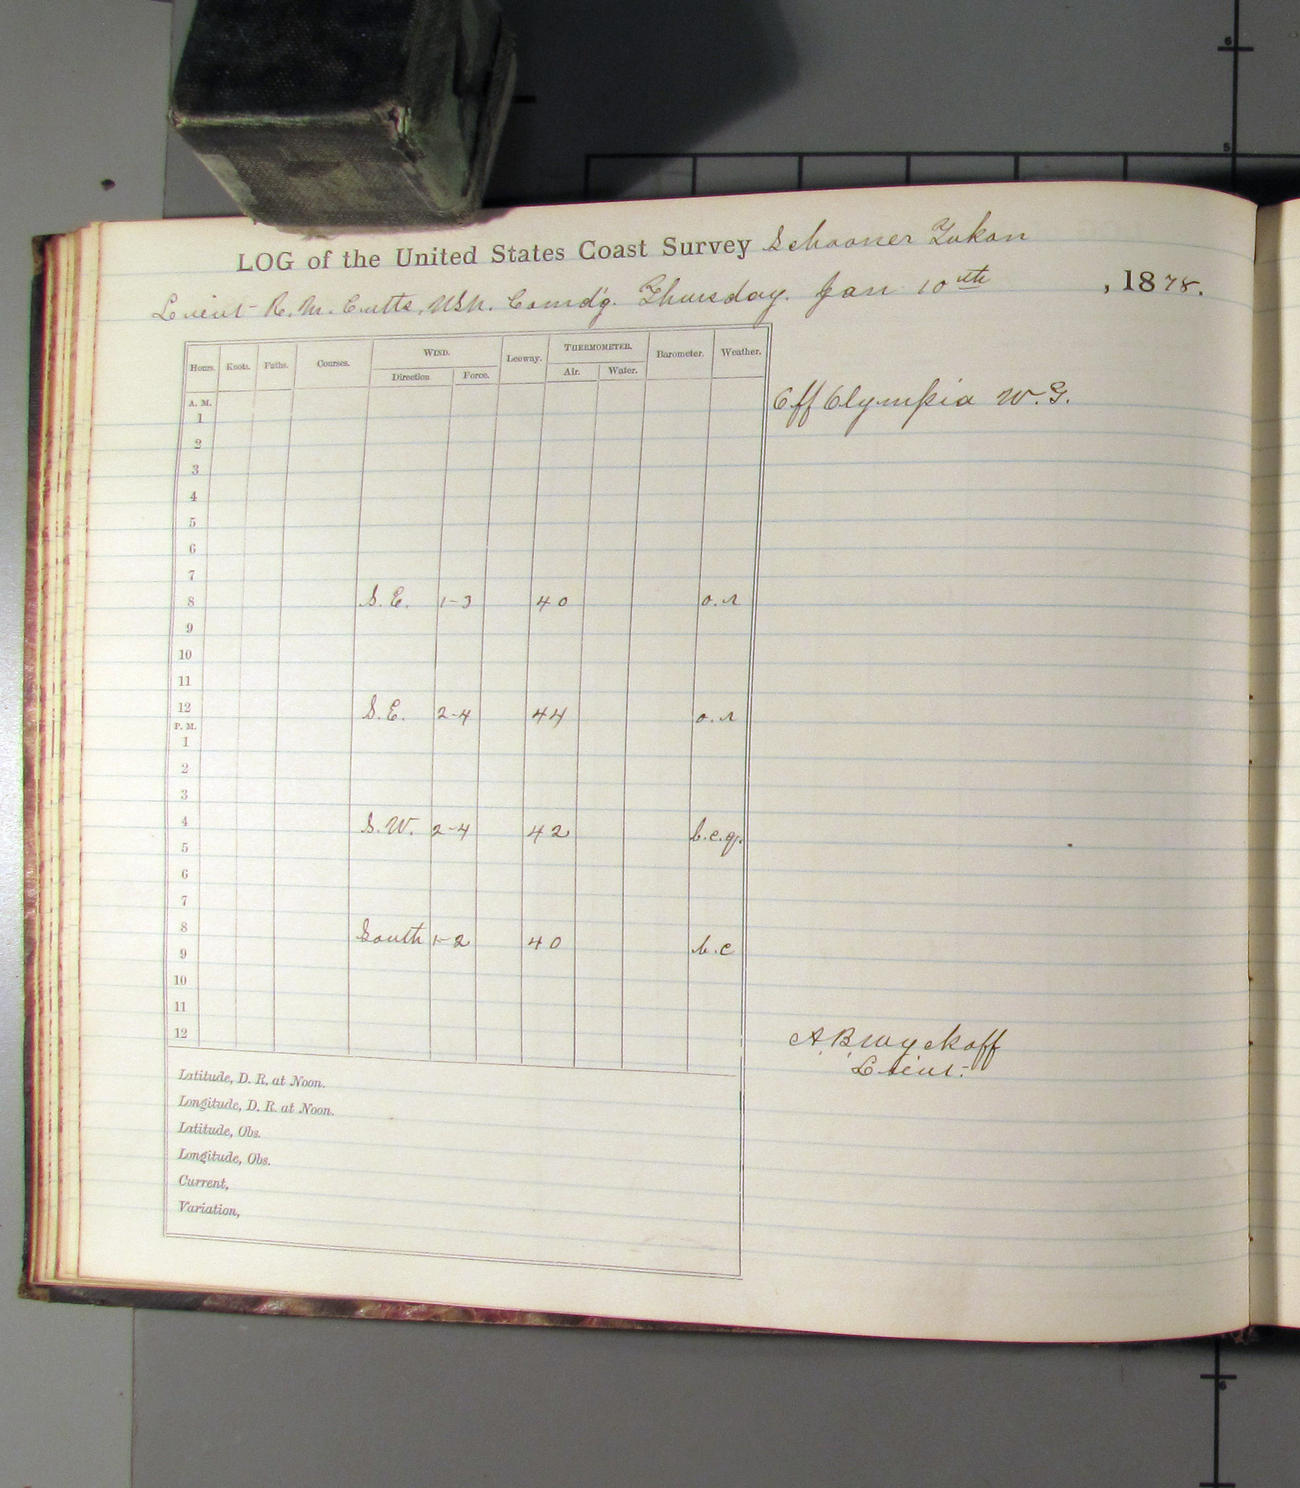 LOG of the United States Coast Survey Schooner Yukon
Lieut R. M. Cutts, USN. Comd'g. Thursday. Jan 10th, 1878.
Hours. Knots. Faths. Courses. WIND. Leeway. THERMOMETER. Barometer. Weather.
Direction Force. Air. Water.
A. M. Off Olympia W. T.
1
2
3
4
5
6
7
8 S.E. 1-3 40 o.r
9
10
11
12 S.E. 2-4 44 o.r
P. M.
1
2
3
4 S.W. 2-4 42 b.c.q.
5
6
7
8 South 1-2 40 b.c
9
10
11
12
A. B. Wyckoff
Lieut.
Latitude, D. R. at Noon.
Longitude, D. R. at Noon.
Latitude, Obs.
Longitude, Obs.
Current,
Variation,
6
5
6